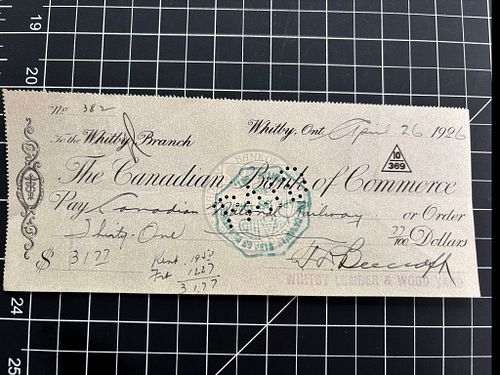 19
20
24
25
No 382
To the Whitby Branch
Whitby, Ont. April 26 1926
10
369
The Canadian Bank of Commerce
Pay Canadian National Railway or Order
Thirty-One 77/100 Dollars
$ 3177
Rent 1950
Frt 1227
3177
LUMBER & WOOD YARD